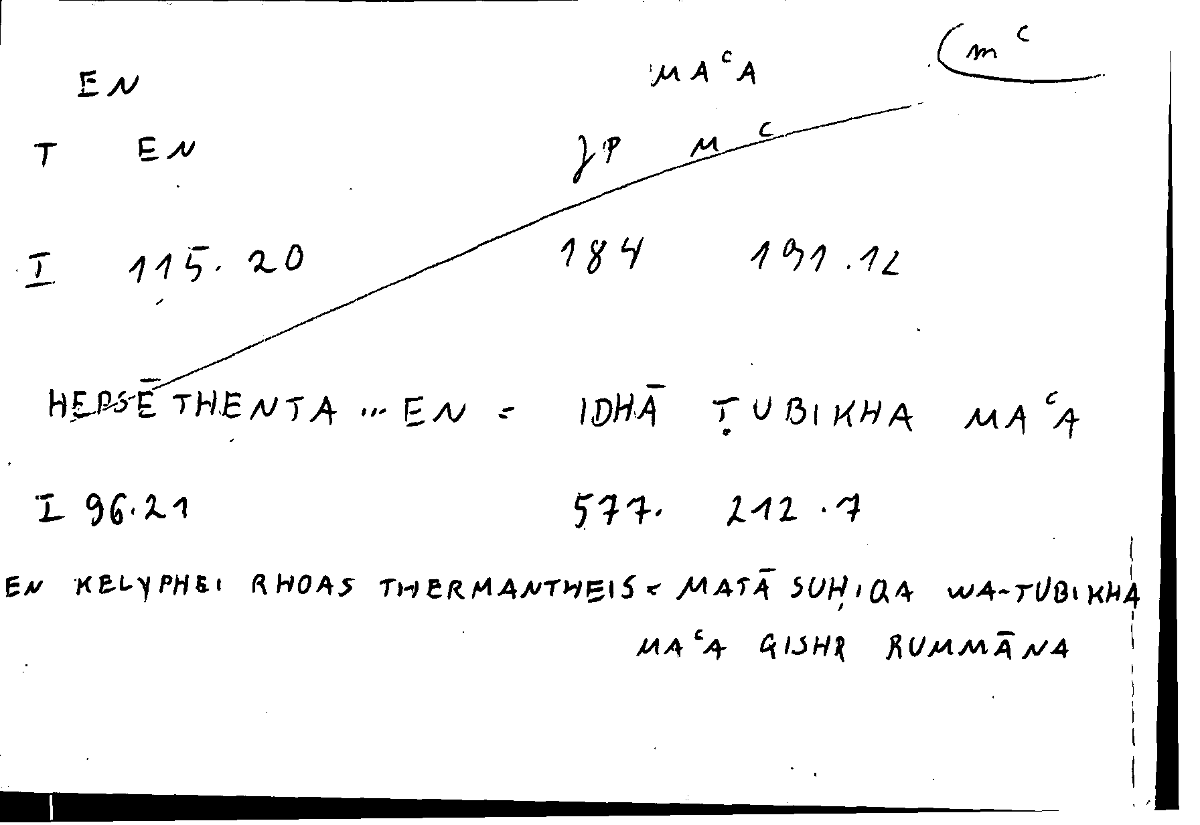 EN MAᶜA (mᶜ
T EN JP Mᶜ
I 115.20 184 191.12
HEPSĒTHENTA ... EN = IDHĀ ṬUBIKHA MAᶜA
I 96.21 577. 212.7
EN KELYPHEI RHOAS THERMANTHEIS = MATĀ SUḤIQA WA-TUBIKHA
MAᶜA QISHR RUMMĀNA